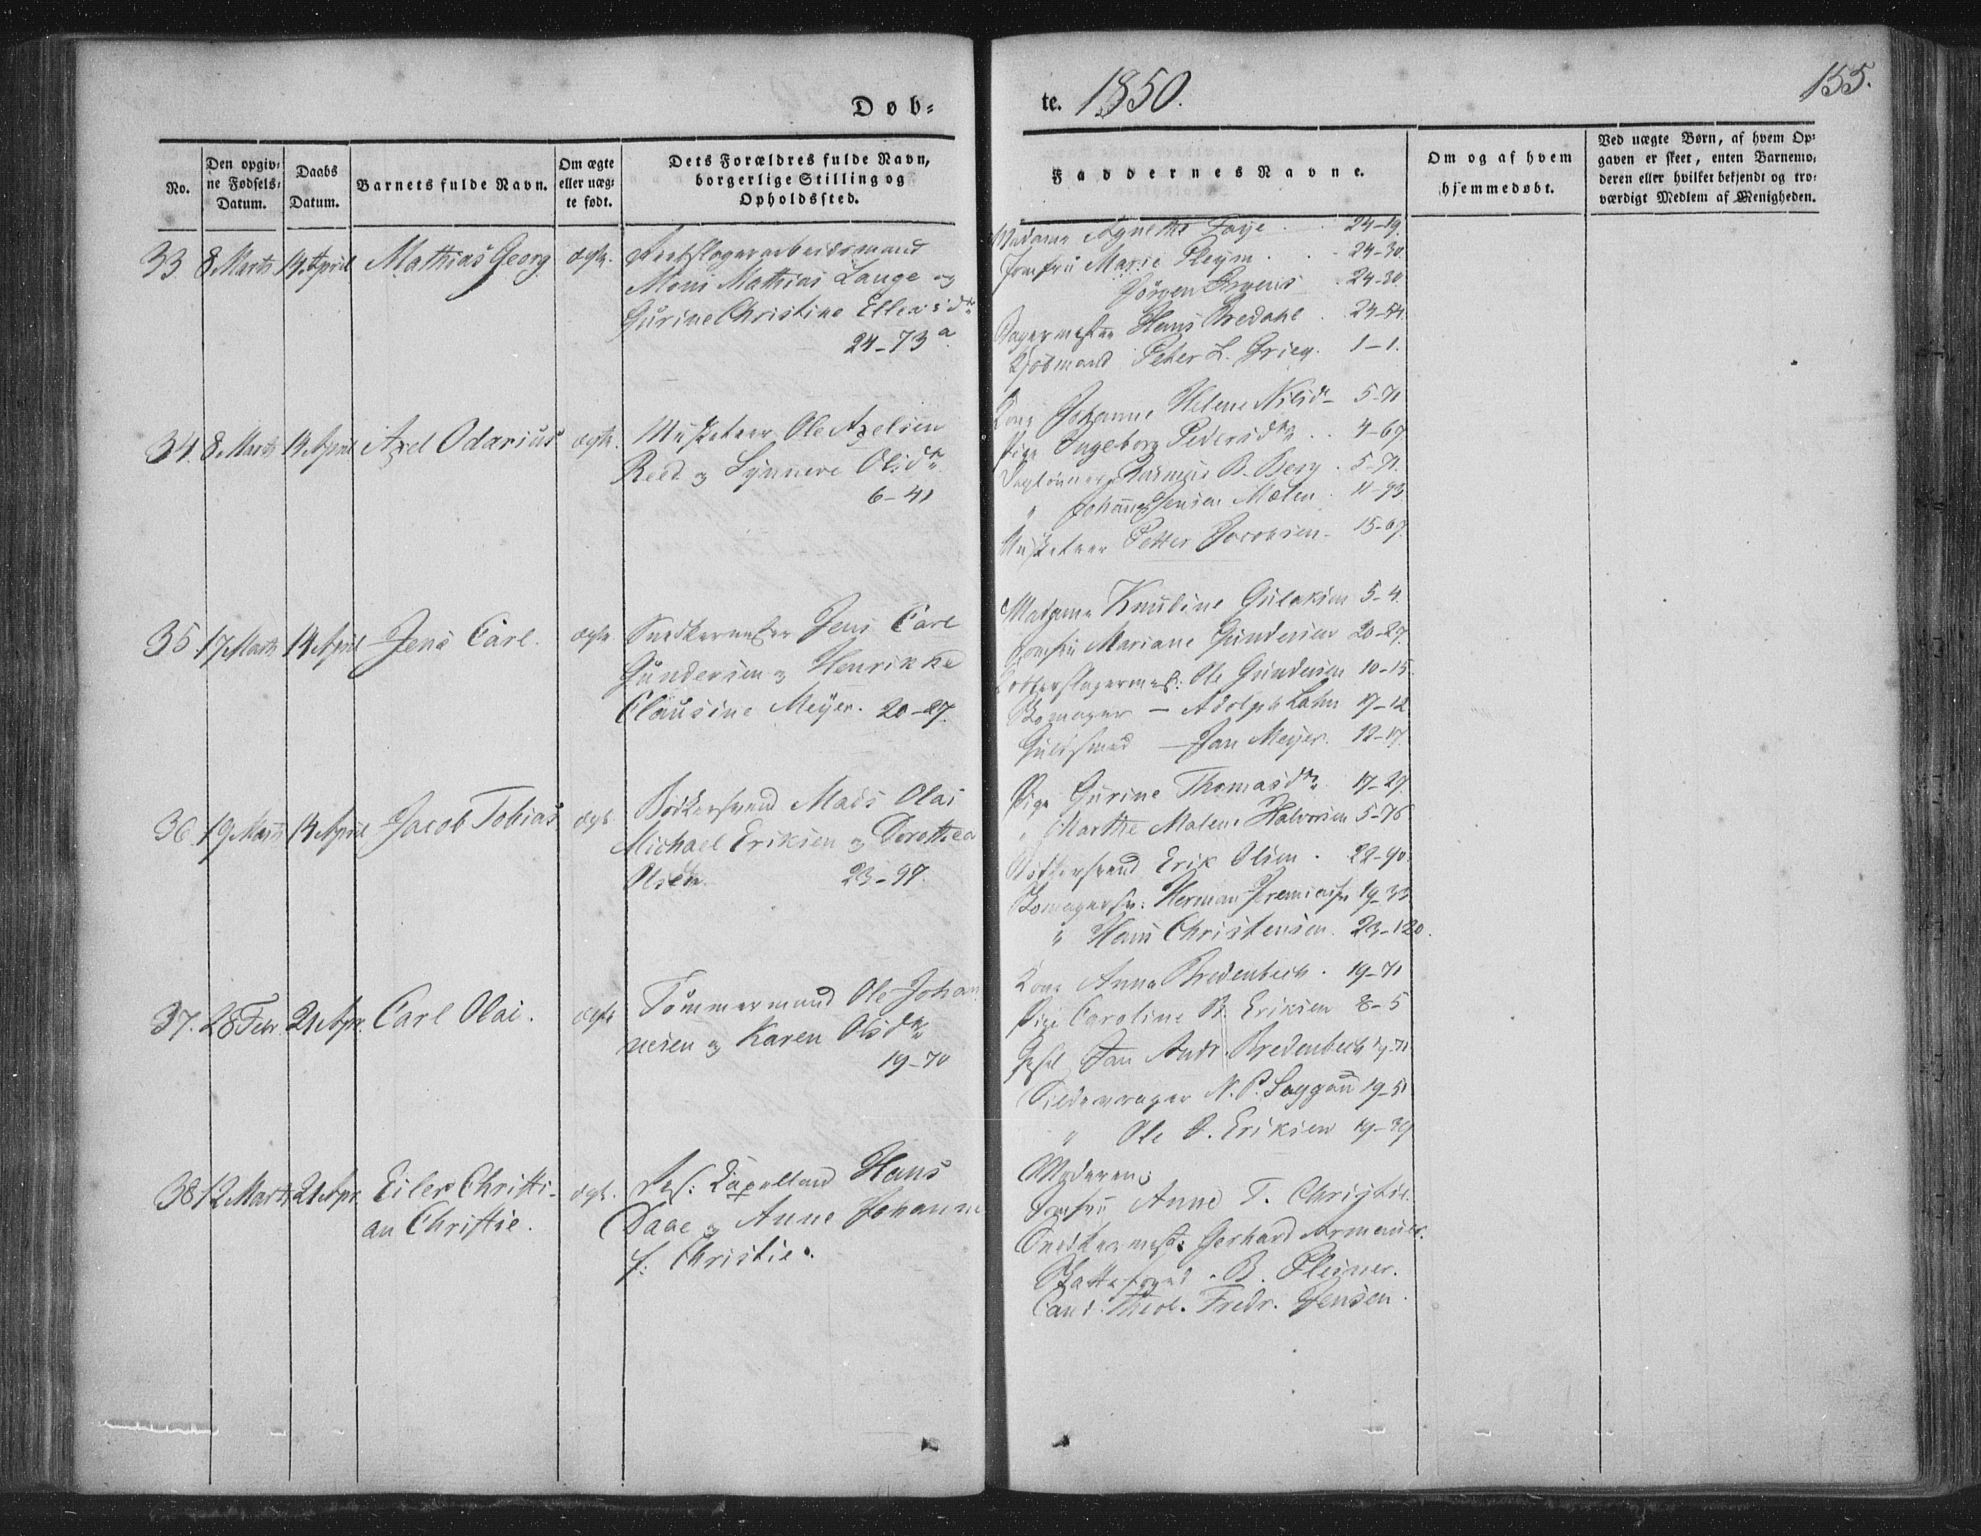 Døb-
te. 1850.
155.
No.
Den opgiv-
ne Fødsels-
Datum.
Daabs
Datum.
Barnets fulde Navn.
Om ægte
eller uæg-
te født.
Dets Forældres fulde Navn,
borgerlige Stilling og
Opholdssted.
Faddernes Navne.
Om og af hvem
hjemmedøbt.
Ved uægte Børn, af hvem Op-
gaven er skeet, enten Barnemo-
deren eller hvilket bekjendt og tro-
værdigt Medlem af Menigheden.
33 8 Marts 14 April Mathias Georg ægte.
Reebslagerarbeidsmand
Mons Mathias Lange og
Gurine Christine Ellevsdr
24-73 a
Madame Agnethe Faye 24-19.
Jomfru Marie Pleym 24-30
Jörgen 24-30
Bagermester Hans Bredahl 24-
Kjöbmand Peter L. Grieg. 1-1.
34. 8 Marts 14 April Axel Odarius ægte.
Musketeer Ole Axelsen
Reed og Synneve Olsdr
6-41
Kone Johanne Helene Nilsdr 5-71
Pige Ingeborg Pedersdr 4-67
Daglønner Rasmus B. Berg 5-71.
" Johannes Jensen Mælen 11-93
Musketeer Petter Jacobsen 15-67
35 17 Marts 14 April Jens Carl. ægte
Snedkermester Jens Carl
Gundersen og Henrikke
Clausine Meyer. 20-27.
Madame Knudine Gulaksen 5-4
Jomfru Mariane Gundersen 20-27
Ole Gundersen 10-15
Skomager - Adolph Lahn 17-12
Guldsmed - Jan Meyer. 12-17.
36. 19 Marts 14 April Jacob Tobias ægt.
Bödkersvend Mads Olai
Michael Eriksen og Dorothea
Olsdtr. 23-97.
Pige Gurine Thomasdtr 17-27
" Marthe Malene Halvorsen 5-76
Bödkersvend Erik Olsen 22-90.
Skomagersv: Herman Jremiasen 19-33
" Hans Christensen. 23-120.
37. 28 Febr. 21 Apr. Carl Olai. ægte
Tømmermand Ole Johan-
nesen og Karen Olsdtr
19-70
Kone Anna Bredenbech 19-71
Pige Caroline B. Eriksen 8-5
Jan Andr. Bredenbech 19-71.
Sildevrager N. P. Saggau 19-51
" Ole B. Eriksen 19-39
38 12 Marts 21 Apr. Eiler Christi-
an Christie. ægt.
Res: Capelland Hans
Daae og Anne Johanne
f: Christie.
Moderen
Jomfru Anne T. Christie.
Snedkermest: Gerhard Armauer.
Skattefoged B. Plesner.
Cand. Theol. Fredr. Jensen.